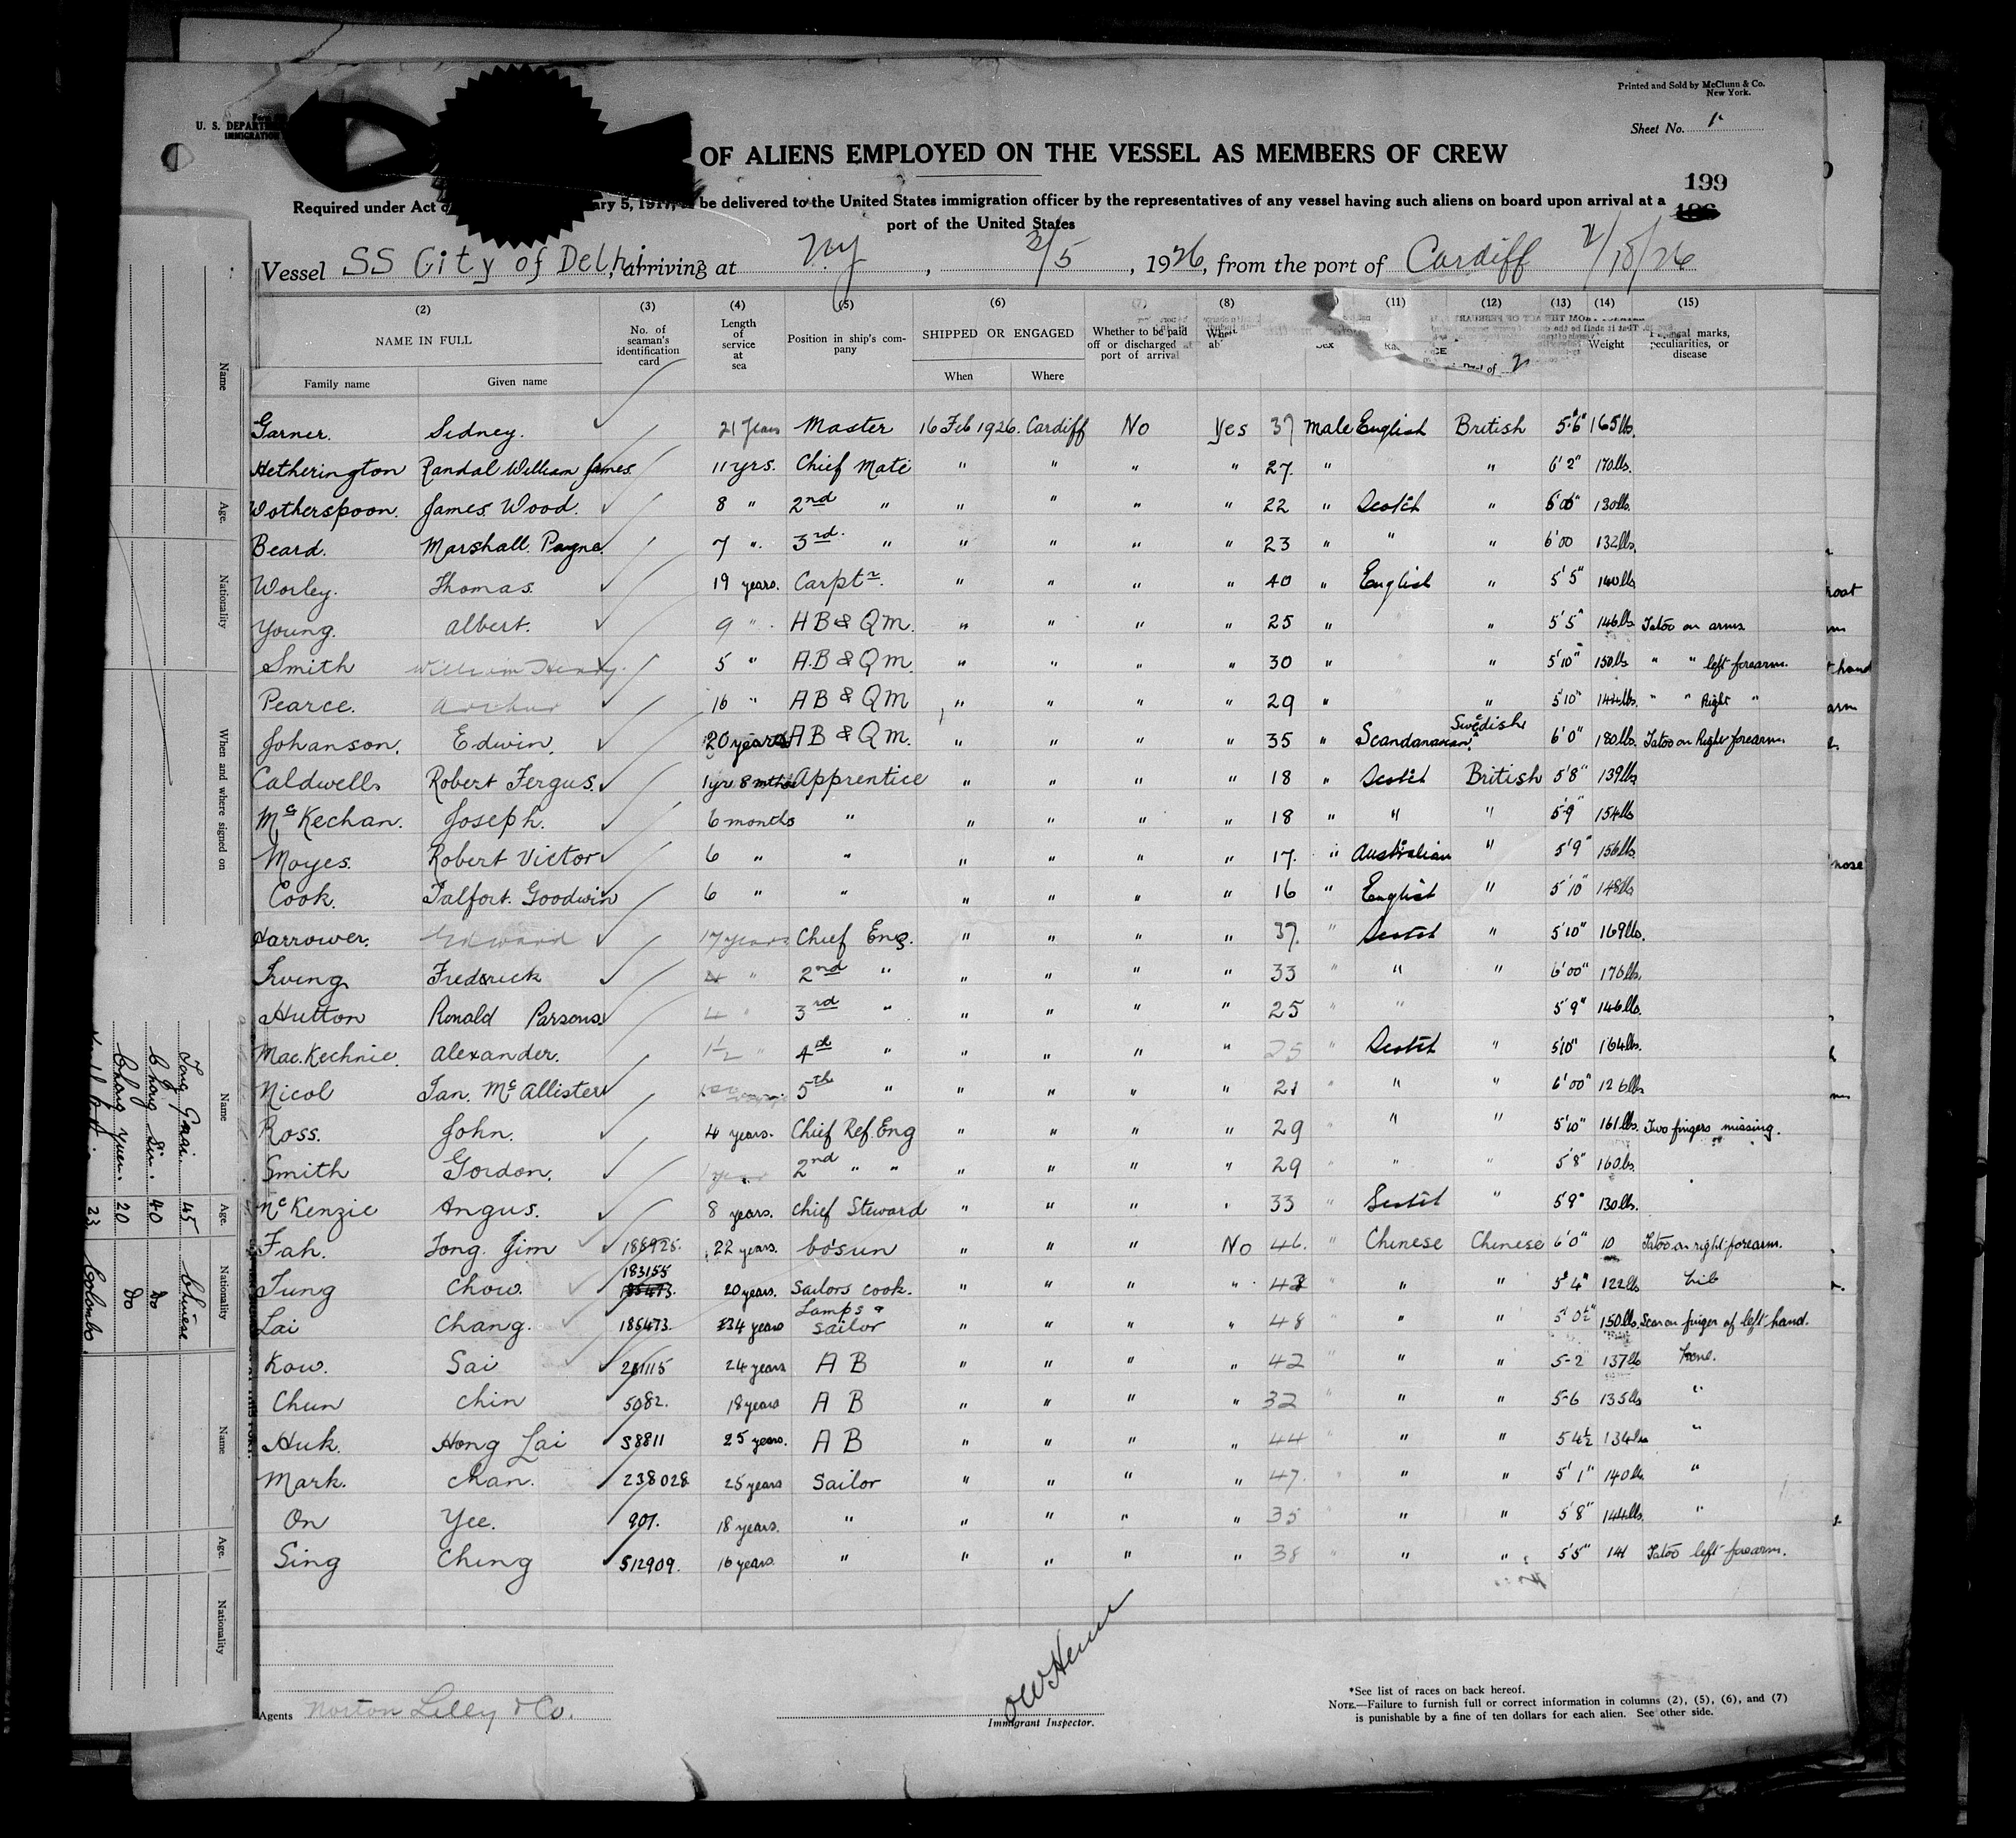 Printed and Sold by McClunn & Co.
New York.
U. S. DEPARTM
IMMIGRATION
Sheet No. 1
OF ALIENS EMPLOYED ON THE VESSEL AS MEMBERS OF CREW
199
Required under Act ary 5, 1917, be delivered to the United States immigration officer by the representatives of any vessel having such aliens on board upon arrival at a
port of the United States
Vessel SS City of Delhi, arriving at N.Y. 3/5, 1926, from the port of Cardiff
(2) (3) (4) (5) (6) (7) (8) (11) (12) (13) (14) (15)
NAME IN FULL No. of seaman's identification card Length of service at sea Position in ship's company SHIPPED OR ENGAGED Whether to be paid off or discharged at port of arrival Weight marks, peculiarities, or disease
Family name Given name When Where
Garner. Sidney. 21 Years Master 16 Feb 1926. Cardiff No Yes 37 male English British 5'6" 165 lb.
Hetherington Randal William James. 11 yrs. Chief Mate " " " " 27. " " 6'2" 170 lbs.
Wotherspoon. James Wood. 8 " 2nd " " " " " 22 " Scotch " 6'00" 130 lbs.
Beard. Marshall Payne. 7 " 3rd. " " " " " 23 " " " 6'00 132 lbs.
Worley. Thomas. 19 years. Carptr. " " " " 40 " English " 5'5" 140 lb
Young. Albert. 9 " H B & Q M. " " " " 25 " " 5'5" 146 lb Tatoo on arms
Smith William Henry. 5 " A.B & Q M. " " " " 30 " " 5'10" 150 lb " " left forearm.
Pearce. Arthur 16 " A B & Q M " " " " 29 " " 5'10" 144 lbs. " " Right "
Johanson. Edwin. 20 years A B & Q M. " " " " 35 " Scandanavian. Swedish 6'0" 180 lbs. Tatoo on Right forearm.
Caldwell Robert Fergus. 1 yr 8 mths Apprentice " " " " 18 " Scotch British 5'8" 139 lbs
McKechan. Joseph. 6 months " " " " " 18 " " " 5'9" 154 lb
Moyes. Robert Victor 6 " " " " " " 17. " Australian " 5'9" 156 lb.
Cook. Talfort. Goodwin 6 " " " " " " 16 " English " 5'10" 148 lb
Harrower. Edward 17 years Chief Eng. " " " " 37. " Scotch " 5'10" 169 lbs.
Irving Frederick 4 " 2nd " " " " " 33 " " " 6'00" 176 lbs.
Hutton Ronald Parsons. 4 " 3rd " " " " " 25 " " 5'9" 146 lb.
MacKechnie. Alexander. 1½ " 4th " " " " " 25 " Scotch " 5'10" 164 lbs.
Nicol Ian. McAllister 5th " " " " " 21 " " " 6'00" 126 lb
Ross. John. 4 years. Chief Ref Eng " " " " 29 " " " 5'10" 161 lbs. Two fingers missing.
Smith Gordon. 1 year 2nd " " " " " " 29 " " " 5'8" 160 lbs.
McKenzie Angus. 8 years. Chief Steward " " " " 33 " Scotch " 5'9" 130 lbs.
Fah. Tong Jim 22 years. bo'sun " " " No 46. " Chinese Chinese 6'0" Tatoo on right forearm.
Tung Chow. 183155 20 years. Sailors cook. " " " " 43 " " 5'4" 122 lb
Lai Chang. 185473. 34 years Lamps & sailor " " " " 48 " " " 5'0½" 150 lb. Scar on finger of left hand.
Kow. Sai 24 years A B " " " " 42 " " 5-2 137 lb None.
Chun Chin 5082. 18 years A B " " " " 32 " " " 5-6 135 lb "
Huk. Hong Lai 58811 25 years. A B " " " " 44 " " 5 4½ 134 lb "
Mark. Chan. 238028 25 years Sailor " " " " 47. " " " 5'1" 140 lb "
On Yee. 907. 18 years. " " " " " 35 " " " 5'8" 144 lb. "
Sing Ching 512909. 16 years " " " " " 38 " " " 5'5" 141 Tatoo left forearm.
Agents Norton Lilly & Co.
Immigrant Inspector.
*See list of races on back hereof.
NOTE.—Failure to furnish full or correct information in columns (2), (5), (6), and (7)
is punishable by a fine of ten dollars for each alien. See other side.
Name Age. Nationality When and where signed on
Name Age. Nationality
Chong Sin. 40 do
Chang Yuen. 20 do
23 Colombo.
45 Chinese
Name Age. Nationality